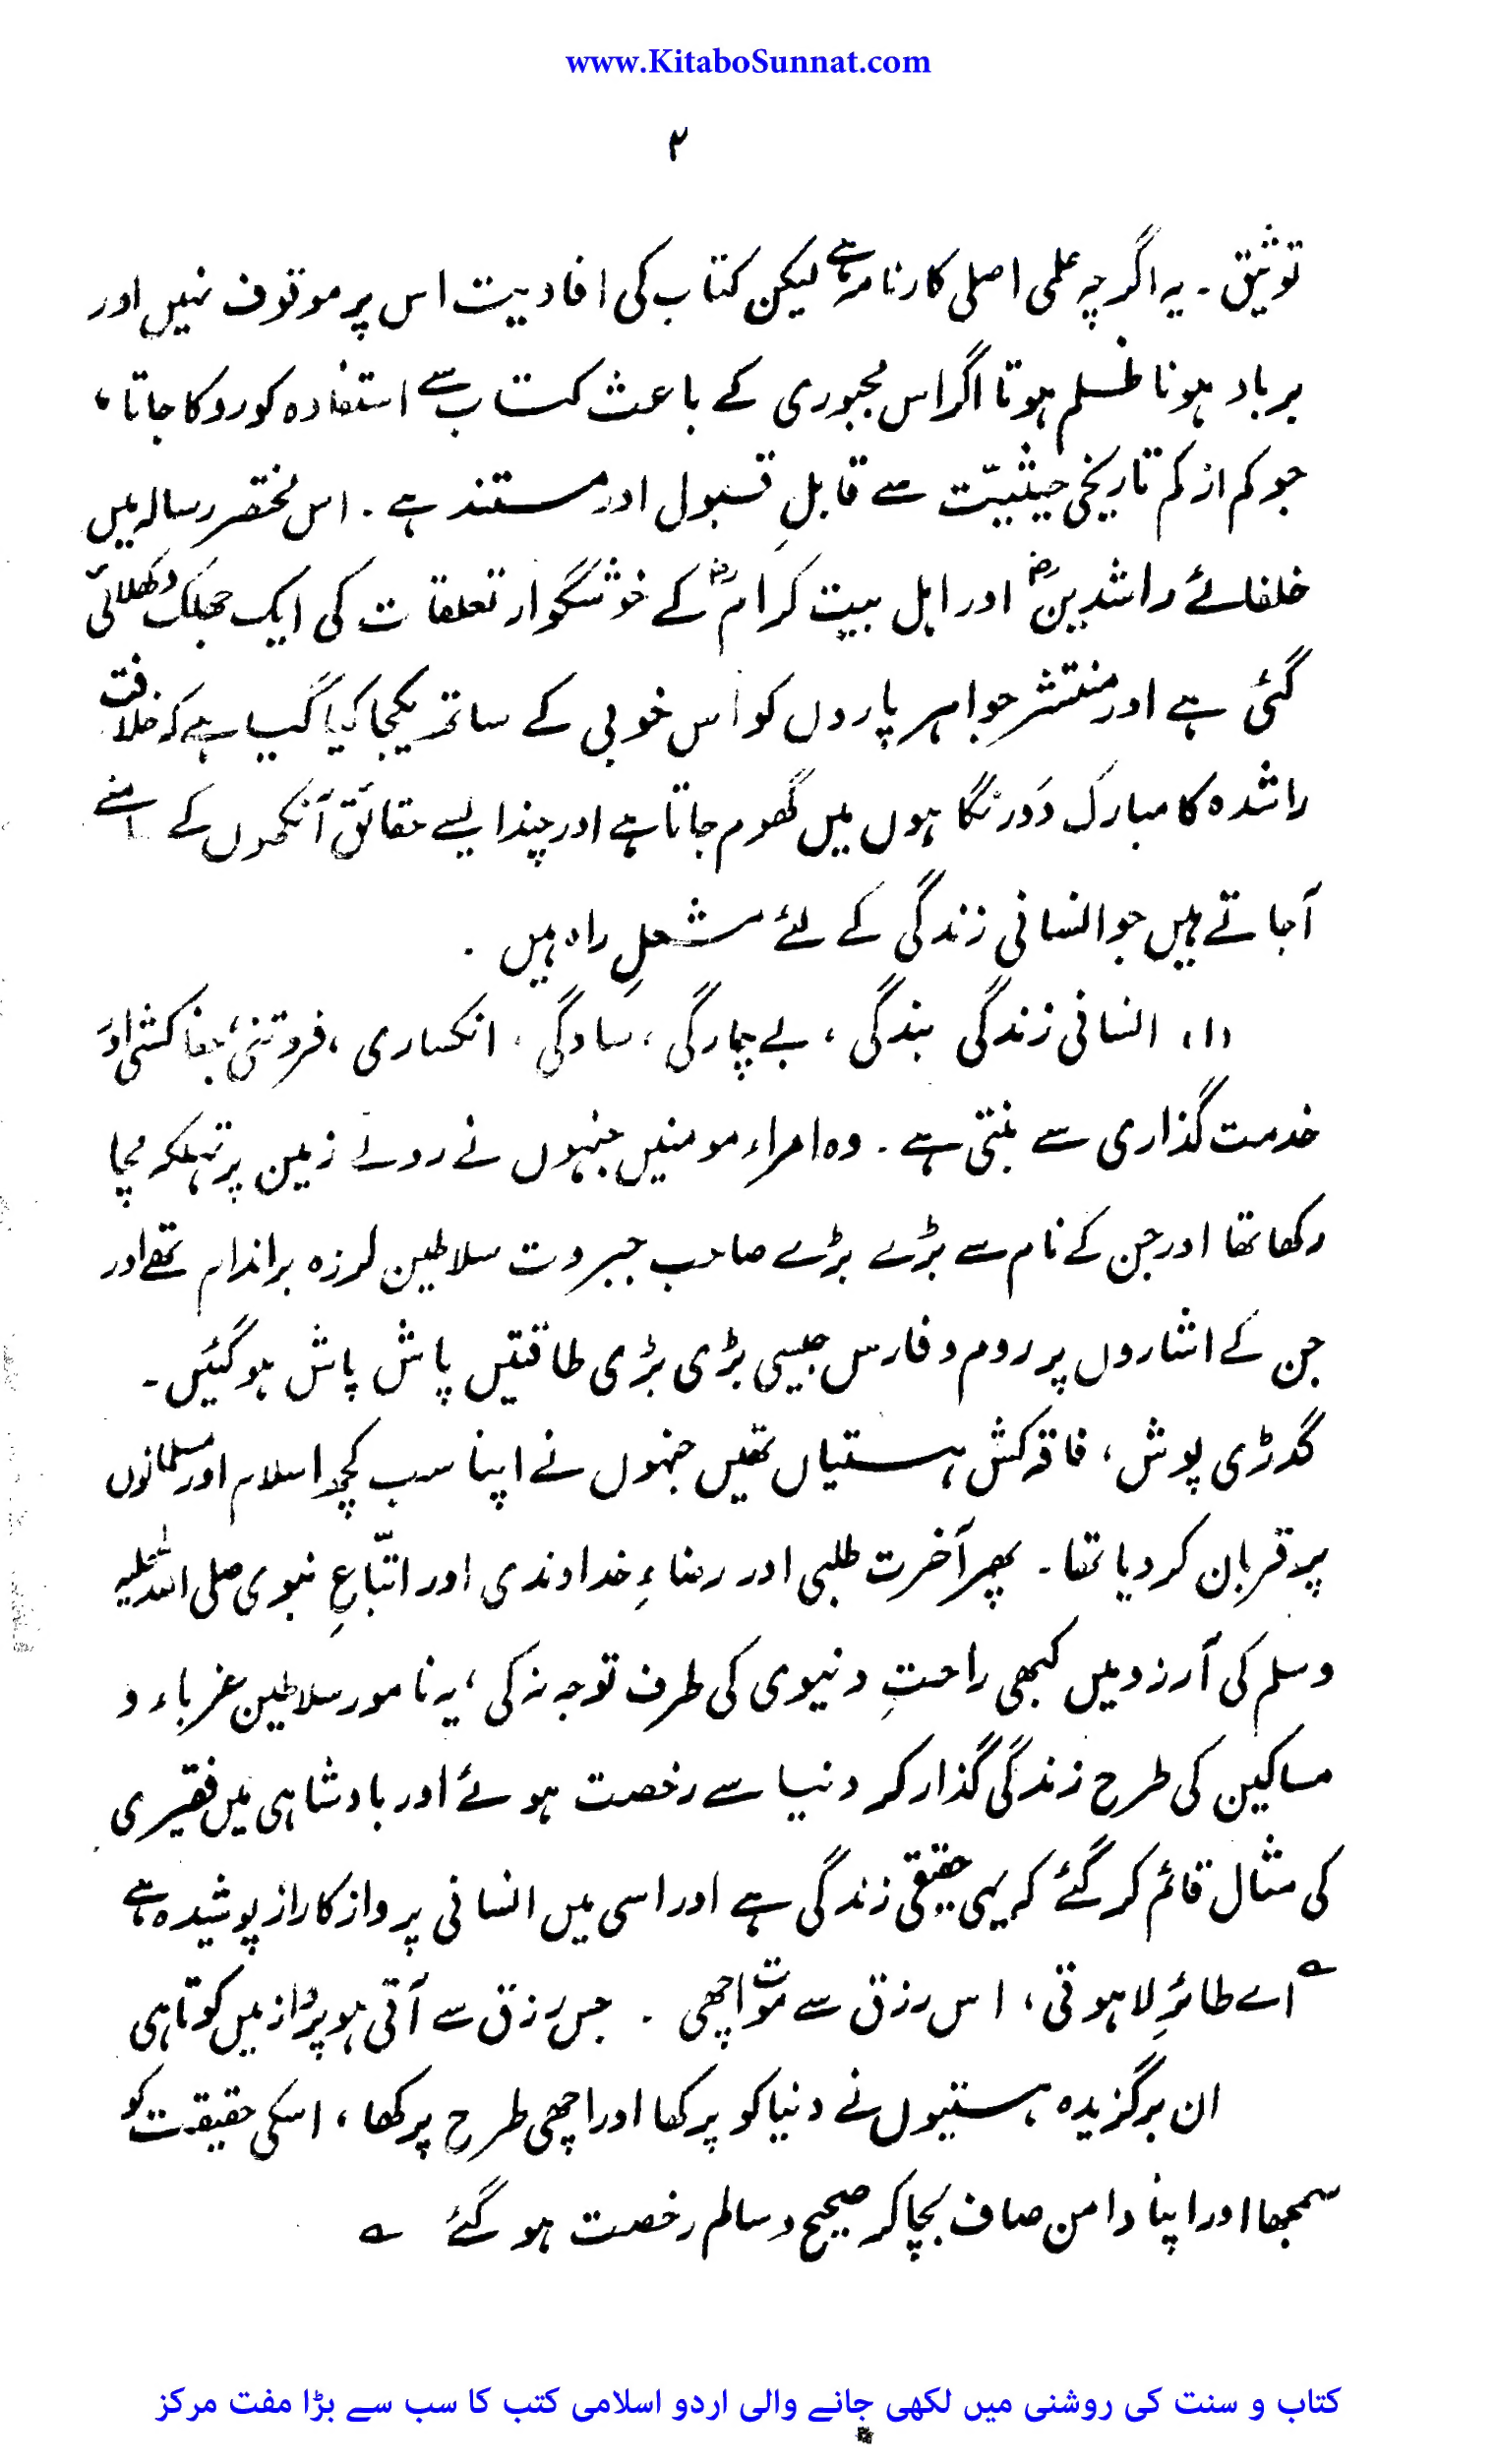 www.KitaboSunnat.com
۲
توثیق ۔ یہ اگرچہ علمی اصلی کارنامہ ہے لیکن کتاب کی افادیت اس پر موقوف نہیں اور
برباد ہونا ظلم ہوتا اگر اس مجبوری کے باعث کتاب سے استفادہ کو روکا جاتا،
جو کم از کم تاریخی حیثیّت سے قابلِ قبول اور مستند ہے ۔ اس مختصر رسالہ میں
خلفائے راشدینؓ اور اہل بیت کرامؓ کے خوشگوار تعلقات کی ایک جھلک دکھلائی
گئی ہے اور منتشر جواہر پاروں کو اس خوبی کے ساتھ یکجا کیا گیا ہے کہ خلافت
راشدہ کا مبارک دَور نگاہوں میں گھوم جاتا ہے اور چند ایسے حقائق آنکھوں کے سامنے
آجاتے ہیں جو انسانی زندگی کے لئے مشعلِ راہ ہیں ۔
(۱) انسانی زندگی بندگی، بے چارگی، سادگی، انکساری، فروتنی، جفاکشی اور
خدمت گذاری سے بنتی ہے ۔ وہ امراء مومنیں جنہوں نے روئے زمین پر تہلکہ مچا
رکھا تھا اور جن کے نام سے بڑے بڑے صاحب جبروت سلاطین لرزہ براندام تھے اور
جن کے اشاروں پر روم و فارس جیسی بڑی بڑی طاقتیں پاش پاش ہوگئیں ۔
گدڑی پوش، فاقہ کش ہستیاں تھیں جنہوں نے اپنا سب کچھ اسلام اور مسلمانوں
پر قربان کر دیا تھا ۔ پھر آخرت طلبی اور رضاءِ خداوندی اور اتّباعِ نبوی صلی اللہ علیہ
وسلم کی آرزو میں کبھی راحتِ دنیوی کی طرف توجہ نہ کی، یہ نامور سلاطین غرباء و
مساکین کی طرح زندگی گذار کر دنیا سے رخصت ہوئے اور بادشاہی میں فقیری
کی مثال قائم کر گئے کہ یہی حقیقی زندگی ہے اور اسی میں انسانی پرواز کا راز پوشیدہ ہے
؎ اے طائرِ لاہوتی، اس رزق سے موت اچھی ۔ جس رزق سے آتی ہو پرواز میں کوتاہی
ان برگزیدہ ہستیوں نے دنیا کو پرکھا اور اچھی طرح پرکھا، اسکی حقیقت کو
سمجھا اور اپنا دامن صاف بچا کر صحیح و سالم رخصت ہو گئے ؎
کتاب و سنت کی روشنی میں لکھی جانے والی اردو اسلامی کتب کا سب سے بڑا مفت مرکز